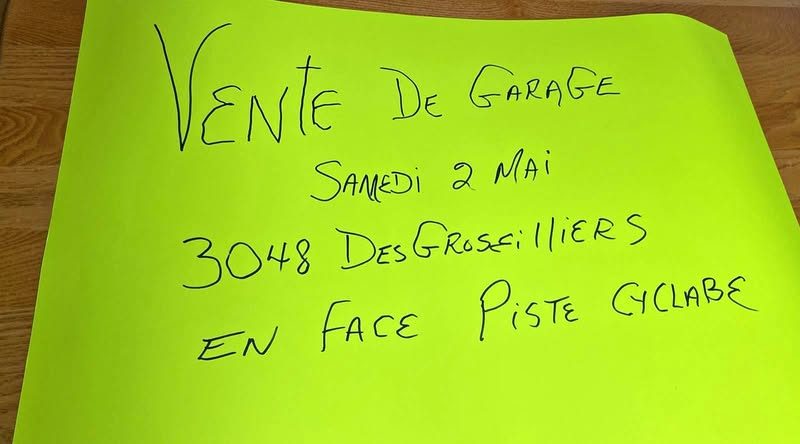 VENTE DE GARAGE
SAMEDI 2 MAI
3048 DESGROSEILLIERS
EN FACE PISTE CYCLABE